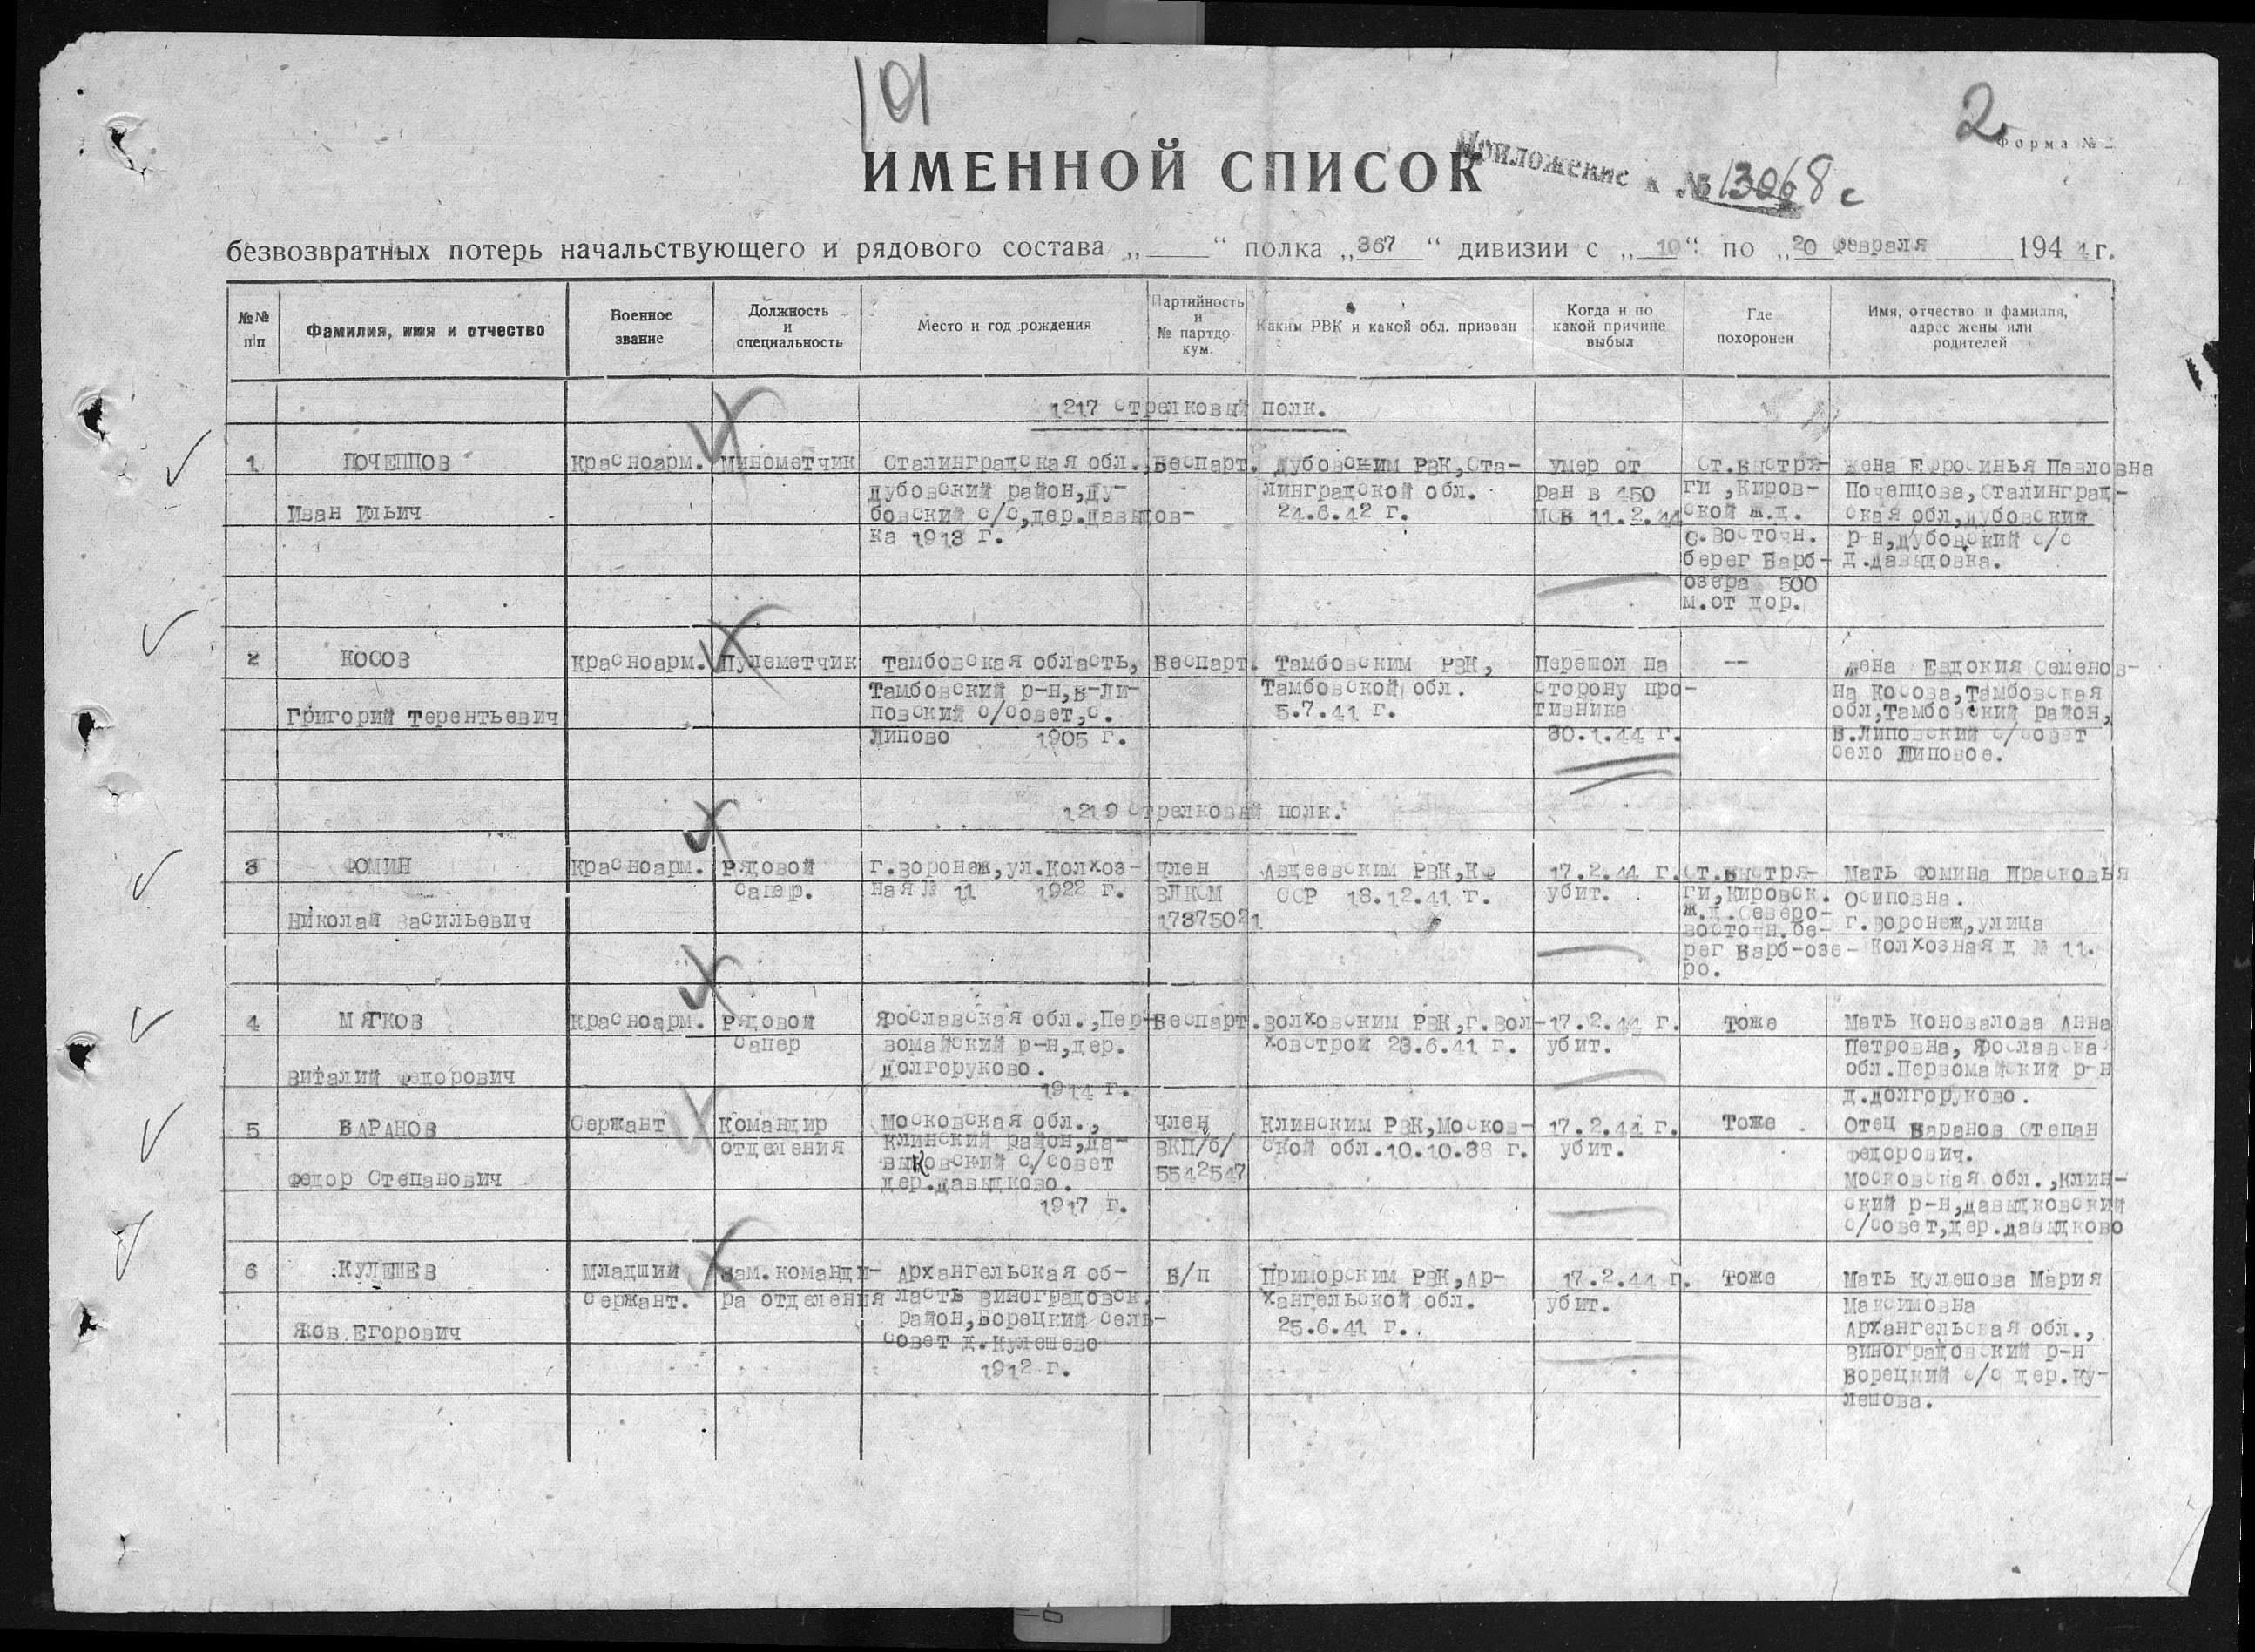 101
2
Форма №
ИМЕННОЙ СПИСОК
Приложение к № 13068 с
безвозвратных потерь начальствующего и рядового состава „ “ полка „367“ дивизии с „10“ по „20 февраля 1944 г.
№№ п/п
Фамилия, имя и отчество
Военное звание
Должность и специальность
Место и год рождения
Партийность и № партдокум.
Каким РВК и какой обл. призван
Когда и по какой причине выбыл
Где похоронен
Имя, отчество и фамилия, адрес жены или родителей
1217 Стрелковый полк.
1
ПОЧЕПЦОВ
Иван Ильич
Красноарм.
Минометчик
Сталинградская обл.,
Дубовский район,Ду-
бовский с/с,дер.Давыдов-
ка 1913 г.
Беспарт.
Дубовским РВК,Ста-
линградской обл.
24.6.42 г.
умер от
ран в 450
МСБ 11.2.44
Ст.Быстря-
ги ,Киров-
ской ж.д.
С.Восточн.
берег Варб-
озера 500
м.от дор.
жена Ефросинья Павловна
Почепцова,Сталинград-
ская обл,Дубовский
р-н,Дубовский с/с
д.Давыдовка.
2
КОСОВ
Григорий Терентьевич
Красноарм.
Пулеметчик
Тамбовская область,
Тамбовский р-н,Б-Ли-
повский с/совет,с.
Липово 1905 г.
Беспарт.
Тамбовским РВК,
Тамбовской обл.
5.7.41 г.
Перешол на
сторону про-
тивника
30.1.44 г.
--
жена Евдокия Семенов-
на Косова,Тамбовская
обл,Тамбовский район,
Б.Липовский с/совет
село Липовое.
1219 Стрелковый полк.
3
ФОМИН
Николай Васильевич
Красноарм.
Рядовой
сапер.
г.Воронеж,ул.Колхоз-
ная № 11 1922 г.
член
ВЛКСМ
17375021
Авдеевским РВК,КФ
ССР 18.12.41 г.
17.2.44 г.
убит.
Ст.Быстря-
ги,Кировск.
ж.д.Северо-
восточн.бе-
рег Варб-озе-
ро.
Мать Фомина Прасковья
Осиповна.
г.Воронеж,улица
Колхозная д № 11.
4
МЯГКОВ
Виталий Федорович
Красноарм.
Рядовой
сапер
Ярославская обл.,Пер-
вомайский р-н,дер.
Долгоруково.
1914 г.
Беспарт.
Волховским РВК,г.Вол-
ховстрой 23.6.41 г.
17.2.44 г.
убит.
Тоже
Мать Коновалова Анна
Петровна, Ярославска
обл.Первомайский р-н
д.Долгоруково.
5
БАРАНОВ
Федор Степанович
Сержант
Командир
отделения
Московская обл.,
Клинский район,Да-
выковский с/совет
дер.Давыдково.
1917 г.
член
ВКП/б/
5542547
Клинским РВК,Москов-
ской обл.10.10.38 г.
17.2.44 г.
убит.
Тоже .
Отец Баранов Степан
Федорович.
Московская обл.,Клин-
ский р-н,Давыдковский
с/совет,дер.Давыдково
6
КУЛЕШЕВ
Яков Егорович
Младший
сержант.
Зам.команди-
ра отделения
Архангельская об-
ласть Виноградовск.
район,Борецкий сель-
совет д.Кулешево
1912 г.
Б/п
Приморским РВК,Ар-
хангельской обл.
25.6.41 г.
17.2.44 г.
убит.
Тоже
Мать Кулешова Мария
Максимовна
Архангельская обл.,
Виноградовский р-н
Борецкий с/с дер.Ку-
лешова.